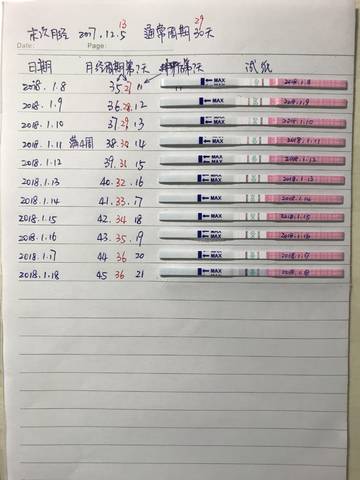 本次月经 2017.12.5 13 通常周期 30天 29
Date: Page:
日期 月经周期第?天 排卵第?天 试纸
2018.1.8 35 27 11 MAX 2018.1.8
2018.1.9 36 28 12 MAX 2018.1.9
2018.1.10 37 29 13 MAX 2018.1.10
2018.1.11 第4周 38 30 14 MAX 2018.1.11
2018.1.12 39 31 15 MAX 2018.1.12
2018.1.13 40 32 16 MAX 2018.1.13
2018.1.14 41 33 17 MAX 2018.1.14
2018.1.15 42 34 18 MAX 2018.1.15
2018.1.16 43 35 19 MAX 2018.1.16
2018.1.17 44 36 20 MAX 2018.1.17
2018.1.18 45 36 21 MAX 2018.1.18